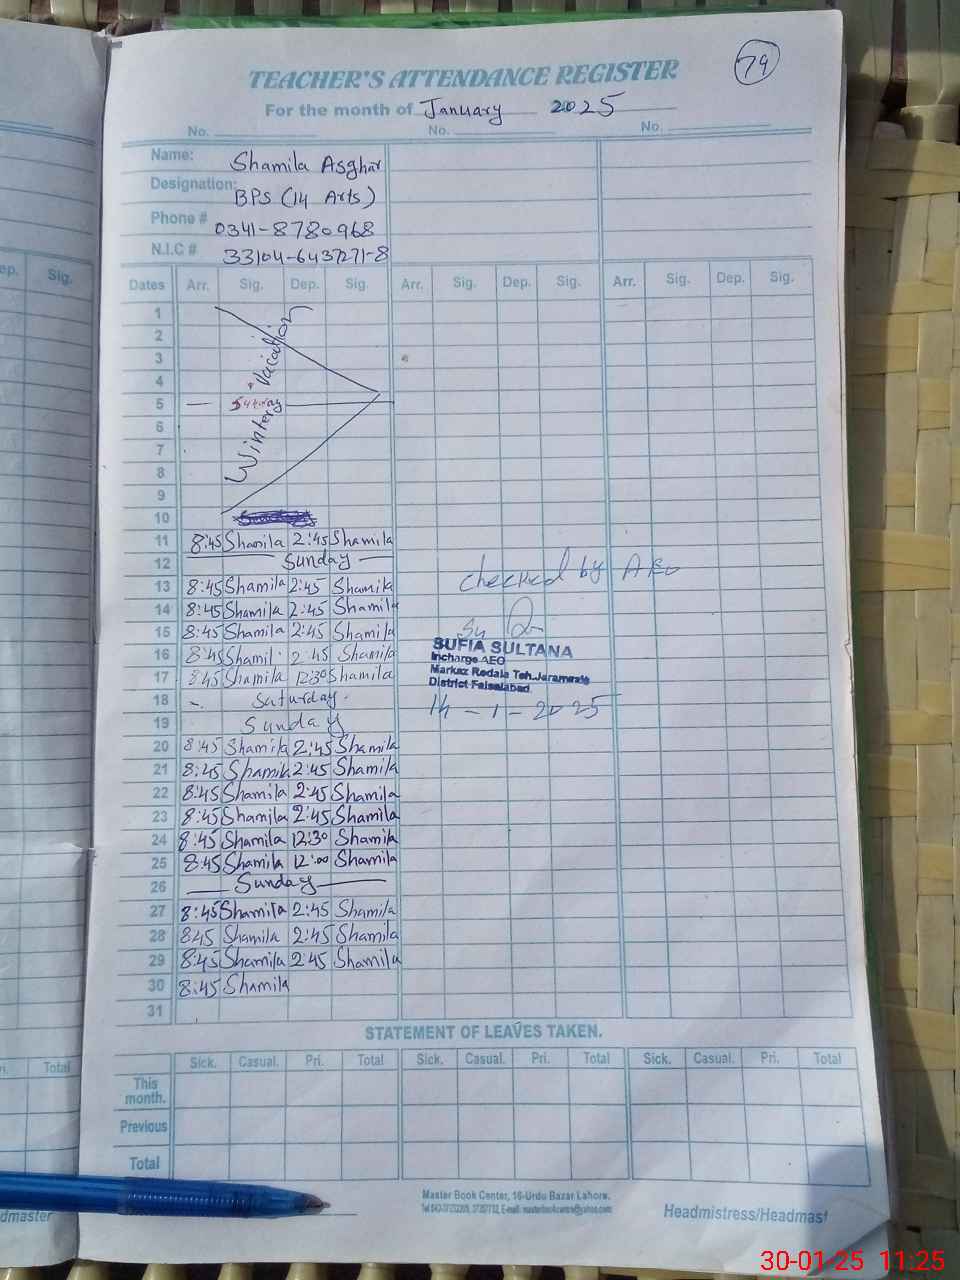 79
TEACHER'S ATTENDANCE REGISTER
For the month of January 2025
No. No. No.
Name: Shamila Asghar
Designation: BPS (14 Arts)
Phone # 0341-8780968
N.I.C # 33104-6437271-8
ep. Sig.
Dates Arr. Sig. Dep. Sig. Arr. Sig. Dep. Sig. Arr. Sig. Dep. Sig.
1
2
3
4
5
6
7
8
9
10
Winter Vacation
11 8:45 Shamila 2:45 Shamila
12 Sunday
13 8:45 Shamila 2:45 Shamila
14 8:45 Shamila 2:45 Shamila
15 8:45 Shamila 2:45 Shamila
16 8:45 Shamil 2:45 Shamila
17 8:45 Shamila 12:30 Shamila
18 Saturday
19 Sunday
20 8:45 Shamila 2:45 Shamila
21 8:45 Shamila 2:45 Shamila
22 8:45 Shamila 2:45 Shamila
23 8:45 Shamila 2:45 Shamila
24 8:45 Shamila 12:30 Shamila
25 8:45 Shamila 12:00 Shamila
26 Sunday
27 8:45 Shamila 2:45 Shamila
28 845 Shamila 2:45 Shamila
29 8:45 Shamila 2:45 Shamila
30 8:45 Shamila
31
checked by AEO
SUFIA SULTANA
Incharge AEO
Markaz Rodala Teh.Jaranwala
District Faisalabad
14-1-2025
STATEMENT OF LEAVES TAKEN.
Total
Sick. Casual. Pri. Total Sick. Casual. Pri. Total Sick. Casual. Pri. Total
This month.
Previous
Total
Master Book Center, 16-Urdu Bazar Lahore.
dmaster
Headmistress/Headmast
30-01-25 11:25